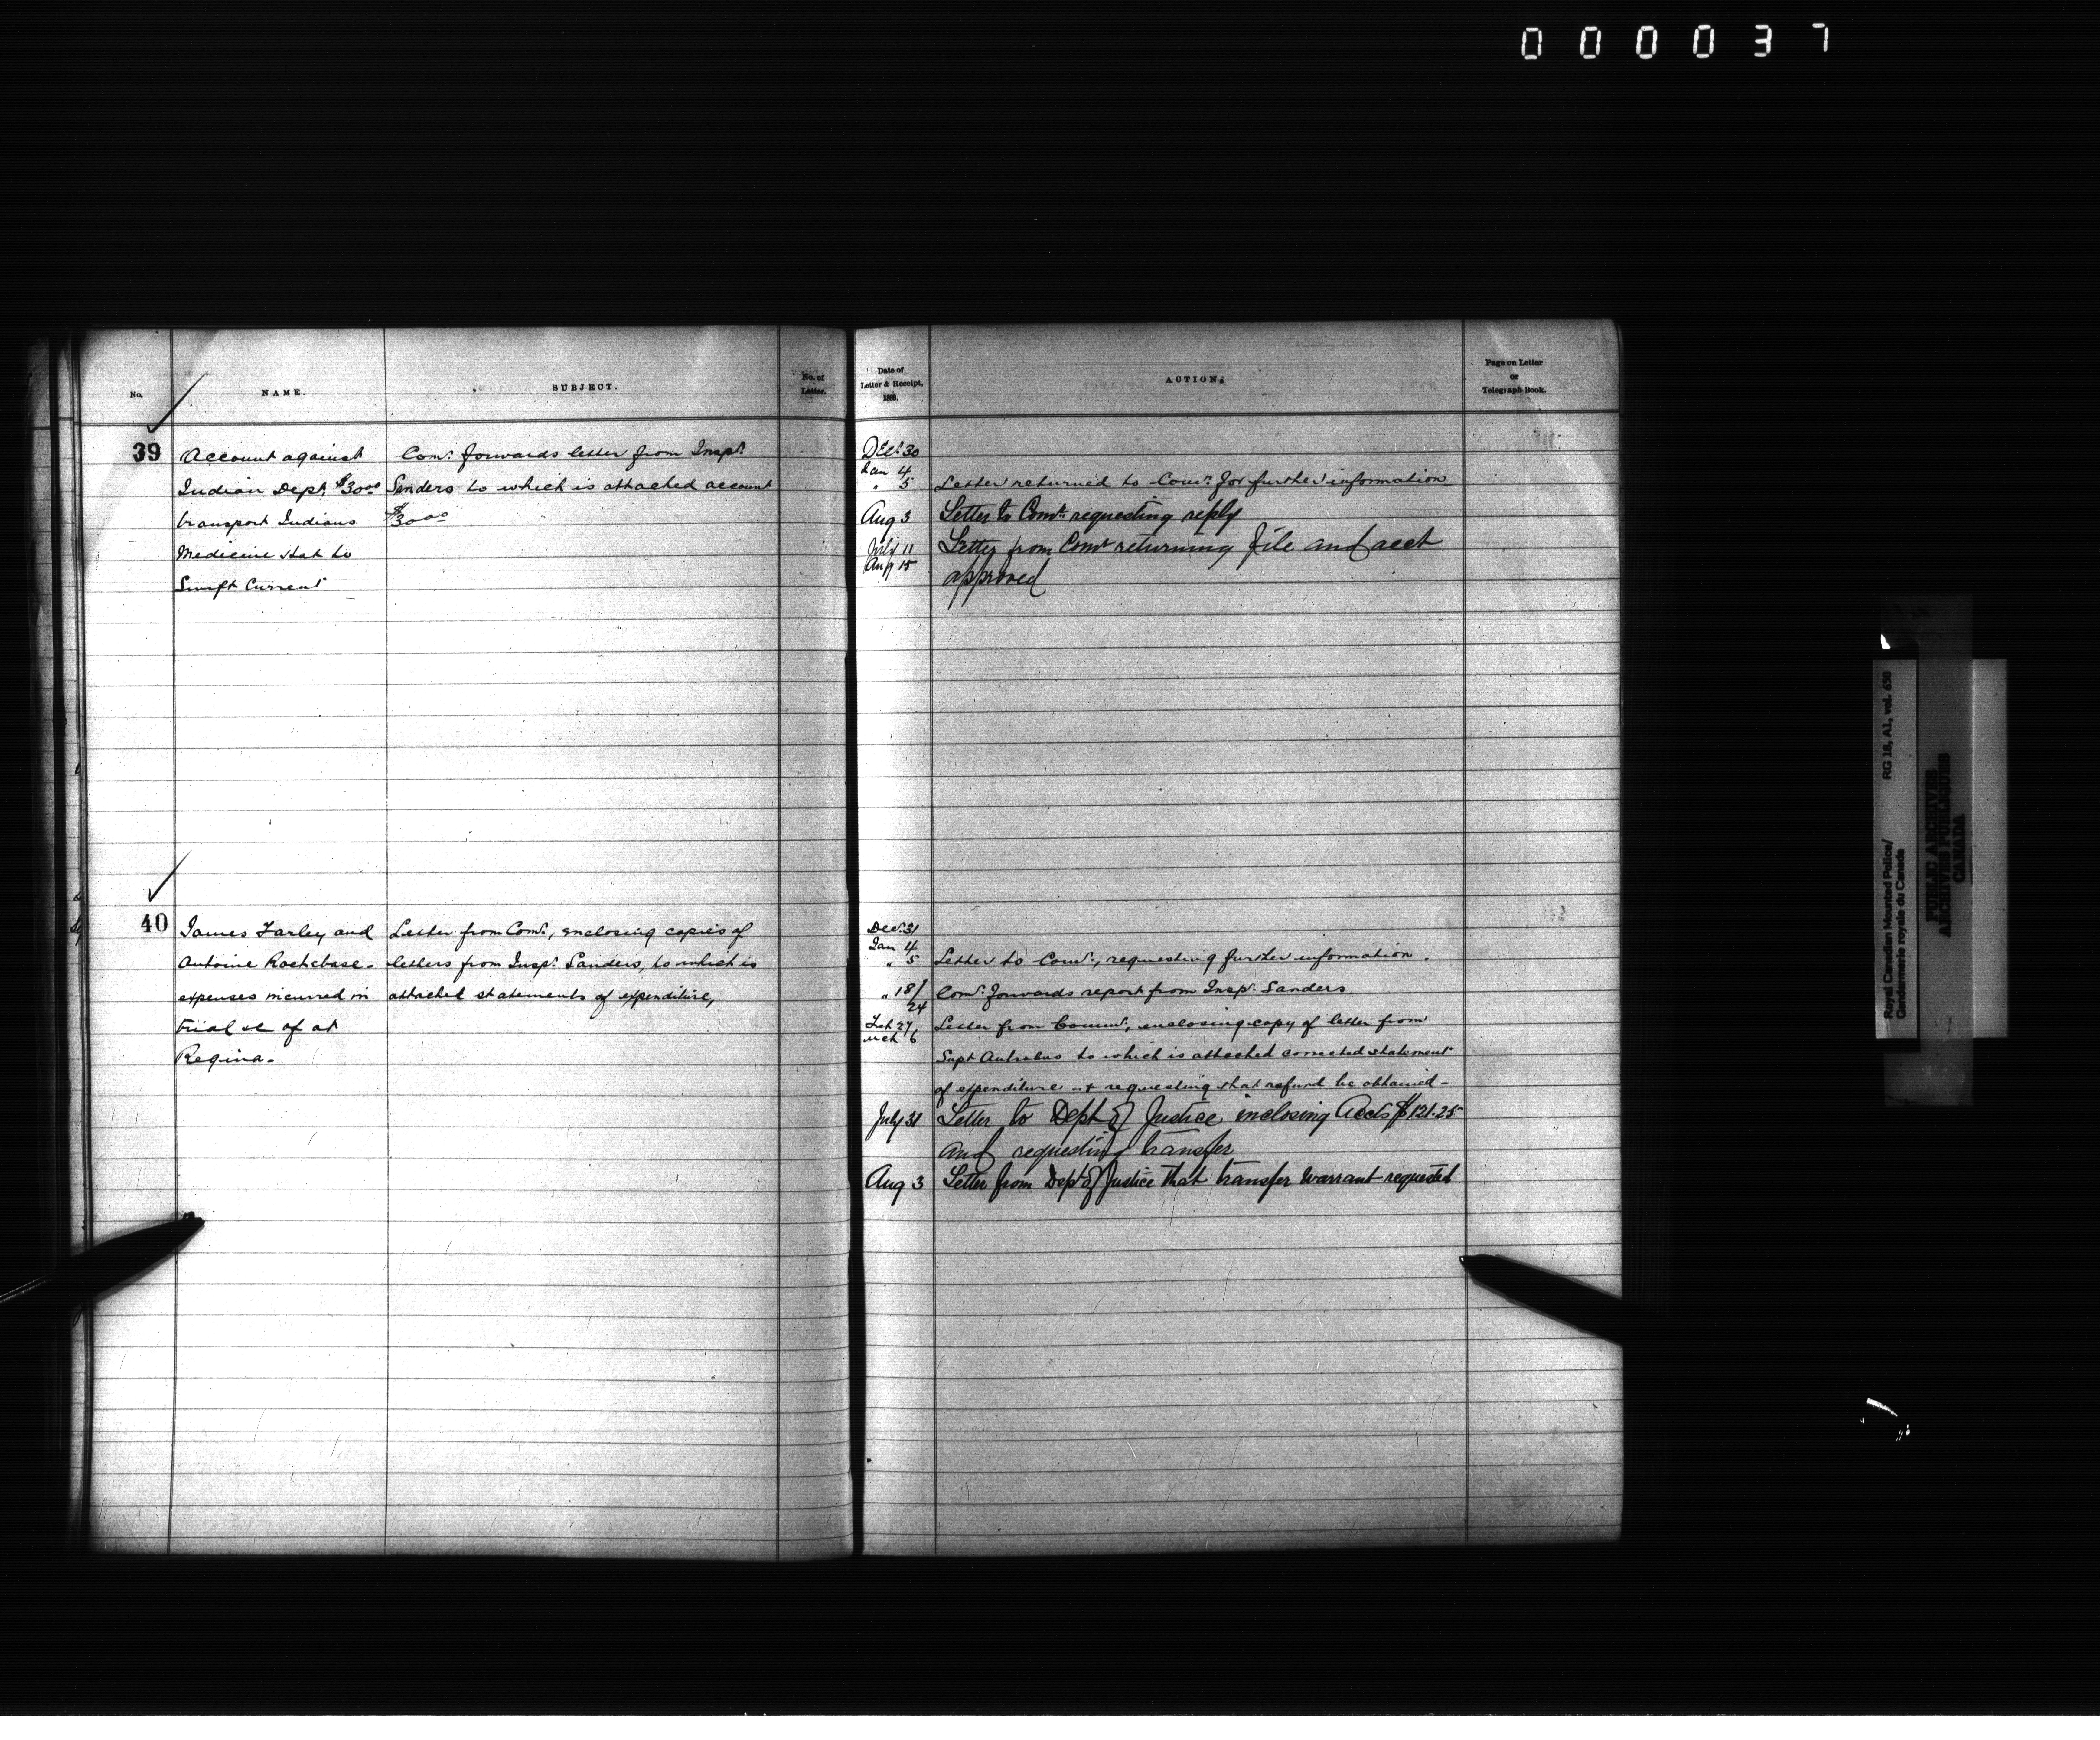 000037
No.
NAME.
SUBJECT.
No. of
Letter.
39
Account against
Indian Dept. $30.00
transport Indians
Medicine Hat to
Swift Current
Comr. forwards letter from Inspr.
Sanders to which is attached account
$30.00
40
James Farley and
Antoine
expenses incurred in
trial &c of at
Regina -
Letter from Comr., enclosing copies of
letters from Inspr. Sanders, to which is
attached statements of expenditure,
Date of
Letter & Receipt,
188
ACTION.
Page on Letter
or
Telegraph Book.
Dec. 30
Jan 4
" 5 Letter returned to Comr. for further information
Aug 3 Letter to Comr. requesting reply
July 11 Letter from Comr returning file and acct
Aug 15 approved
Dec. 31
Jan 4
" 5 Letter to Comr., requesting further information.
" 18/24 Comr. forwards report from Inspr. Sanders
Feb 27, Letter from Commr., enclosing copy of letter from
Mch 6
Supt Antrobus to which is attached corrected statement
of expenditure - & requesting that refund be obtained -
July 31 Letter to Dept of Justice inclosing Accts $121.25
and requesting transfer
Aug 3 Letter from Dept of Justice that transfer warrant requested
Royal Canadian Mounted Police/ RG 18, A1, vol. 650
Gendarmerie royale du Canada
PUBLIC ARCHIVES
ARCHIVES PUBLIQUES
CANADA